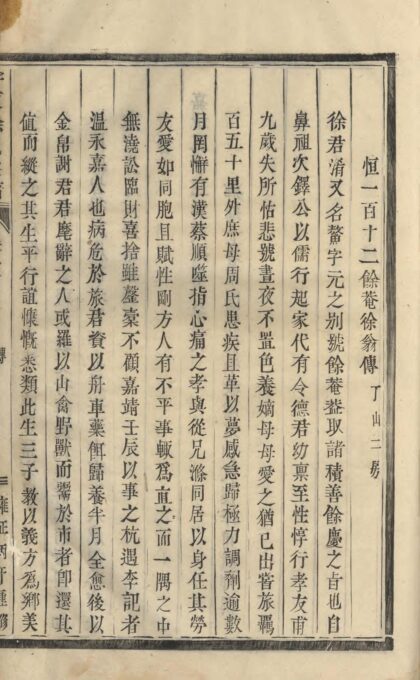 恒一百十二餘菴徐翁傳 了山二房
徐君湑又名鰲字元之别號餘菴葢取諸積善餘慶之旨也自
鼻祖次鐸公以儒行起家代有令德君幼禀至性惇行孝友甫
九歲失所怙悲號晝夜不置色養嫡母母愛之猶已出嘗旅羈
百五十里外庶母周氏患疾且革以夢感急歸極力調劑逾數
月罔懈有漢蔡順噬指心痛之孝與從兄滌同居以身任其勞
友愛如同胞且賦性剛方人有不平事輙為直之面一隅之中
無澆訟臨財喜捨雖釐毫不顧嘉靖壬辰以事之杭遇李記者
温永嘉人也病危於旅君資以舟車藥餌歸養半月全愈後以
金帛謝君君麾辭之人或羅以山禽野獸而鬻於市者卽還其
值而縱之其生平行誼慷慨悉類此生三子教以義方為鄉美
傳
雍正丙午重修